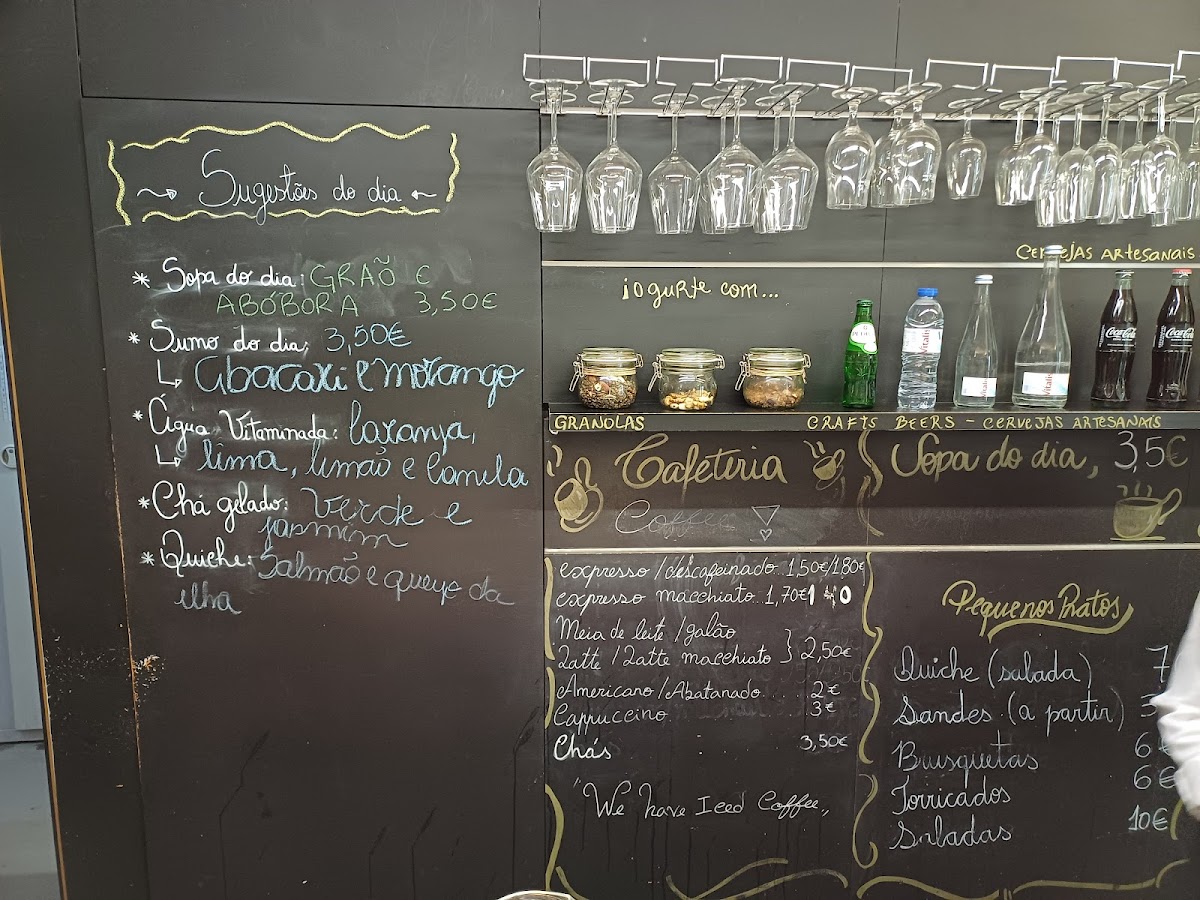 Sugestões do dia
* Sopa do dia: GRAÕ €
ABÓBORA 3,50€
* Sumo do dia: 3,50€
Abacaxi e morango
* Água Vitaminada: laranja,
lima, limão e Canela
* Chá gelado: Verde e
jasmim
* Quiche: Salmão e queijo da
ilha
CERVEJAS ARTESANAIS
iogurte com...
Vitalis
Vitalis
Coca-Cola
Coca-Cola
GRANOLAS
CRAFTS BEERS - CERVEJAS ARTESANAIS
Cafeteria
Coffee
Sopa do dia, 3,5€
expresso/descafeinado 1,50€/1,80€
expresso macchiato.. 1,70€
Meia de leite/galão
Latte/Latte macchiato } 2,50€
Americano/Abatanado..... 2€
Cappuccino 3€
Chás 3,50€
"We have Iced Coffee,,
Pequenos Pratos
Quiche (salada) 7
Sandes (a partir) 3
Brusquetas 6€
Torricados 6€
Saladas 10€